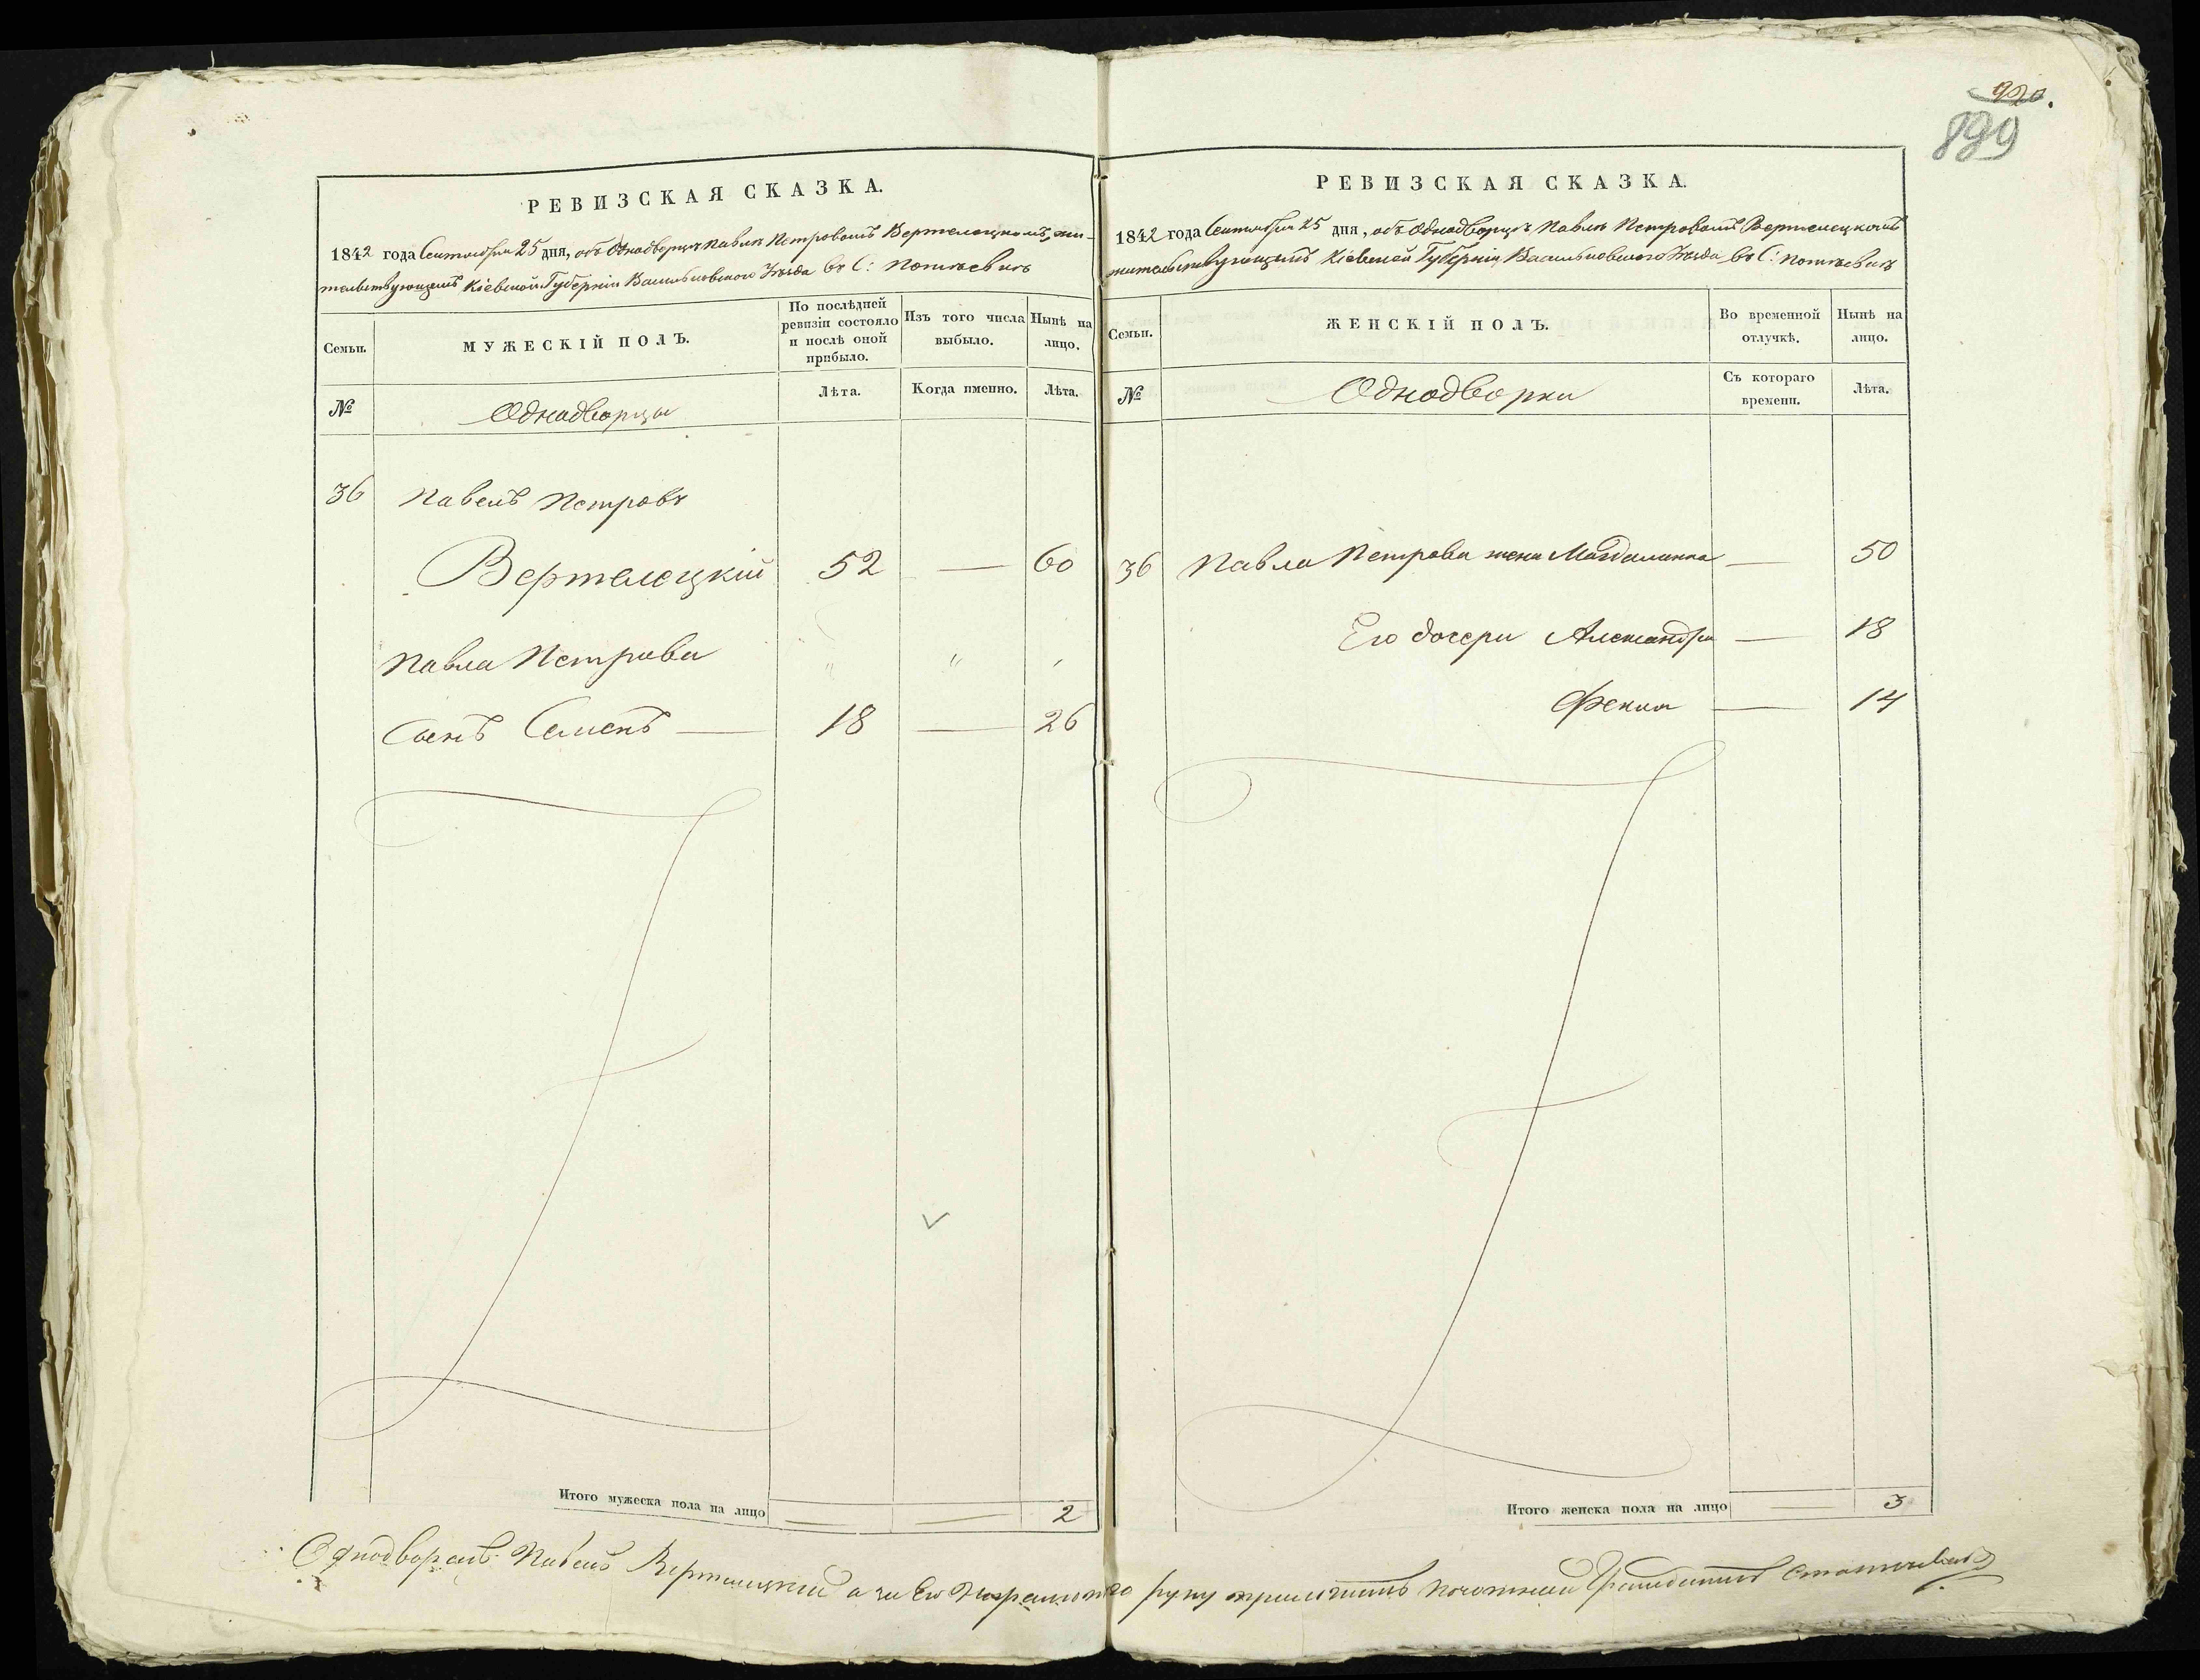 РЕВИЗСКАЯ СКАЗКА.
1842 года Сентября 25 дня, объ Однодворцѣ Павлѣ Петровомъ Вертелецкомъ, жи-
тельствующемъ Кіевской Губерніи Васильковскаго Уѣзда въ С:
Семьи.
МУЖЕСКІЙ ПОЛЪ.
По послѣдней
ревизіи состояло
и послѣ оной
прибыло.
Изъ того числа
выбыло.
Нынѣ на
лицо.
№
Однодворцы
Лѣта.
Когда именно.
Лѣта.
36 Павелъ Петровъ
Вертелецкій 52 — 60
Павла Петрова " " "
Сынъ Семенъ — 18 — 26
Итого мужеска пола на лицо — — 2
920.
899
РЕВИЗСКАЯ СКАЗКА.
1842 года Сентября 25 дня, объ Однодворцѣ Павлѣ Петровомъ Вертелецкомъ
жительствующемъ Кіевской Губерніи Васильковскаго Уѣзда въ С:
Семьи.
ЖЕНСКІЙ ПОЛЪ.
Во временной
отлучкѣ.
Нынѣ на
лицо.
№
Однодворки
Съ котораго
времени.
Лѣта.
36 Павла Петрова жена Магдалина — 50
Его дочери Александра — 18
Фекла — 14
Итого женска пола на лицо — 3
Однодворецъ Павелъ Вертелецкій а за Его неграмотного руку приложилъ